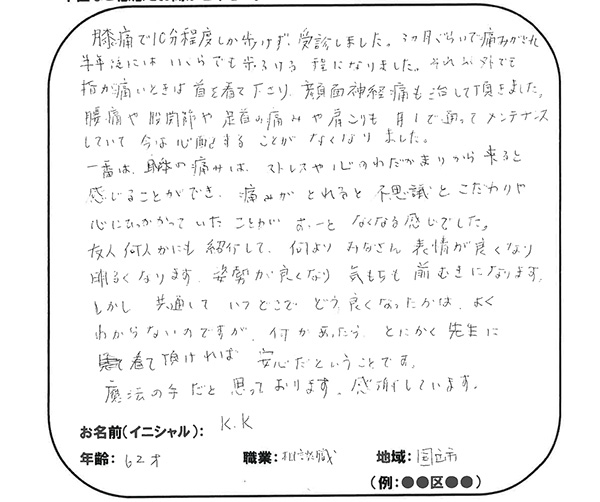 膝痛で10分程度しか歩けず、受診しました。3ヶ月ぐらいで痛みがとれ
半年後にはいくらでも歩ける程になりました。それ以外でも
指が痛いときは首を看て下さり、顔面神経痛も治して頂きました。
腰痛や股関節や足首の痛みや肩こりも月1で通ってメンテナンス
していて今は心配することがなくなりました。
一番は、身体の痛みは、ストレスや心のわだかまりから来ると
感じることができ、痛みがとれると不思議とこだわりや
心にひっかかっていたことがすーっとなくなる感じでした。
友人何人かにも紹介して、何よりみなさん表情が良くなり
明るくなります。姿勢が良くなり気もちも前むきになります。
しかし共通していつどこでどう良くなったかは、よく
わからないのですが、何かあったら、とにかく先生に
看て頂ければ安心だということです。
魔法の手だと思っております。感謝しています。
お名前(イニシャル): K.K
年齢: 62才 職業: 相談職 地域: 国立市
(例:●●区●●)